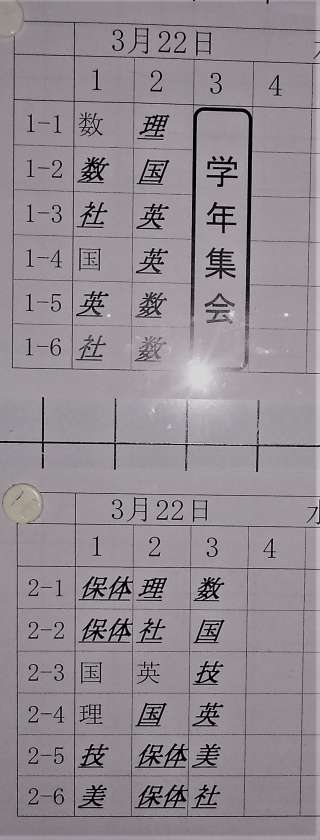 3月22日 水
1 2 3 4
1-1 数 理
1-2 数 国
1-3 社 英
1-4 国 英
1-5 英 数
1-6 社 数
学年集会
3月22日 水
1 2 3 4
2-1 保体 理 数
2-2 保体 社 国
2-3 国 英 技
2-4 理 国 英
2-5 技 保体 美
2-6 美 保体 社